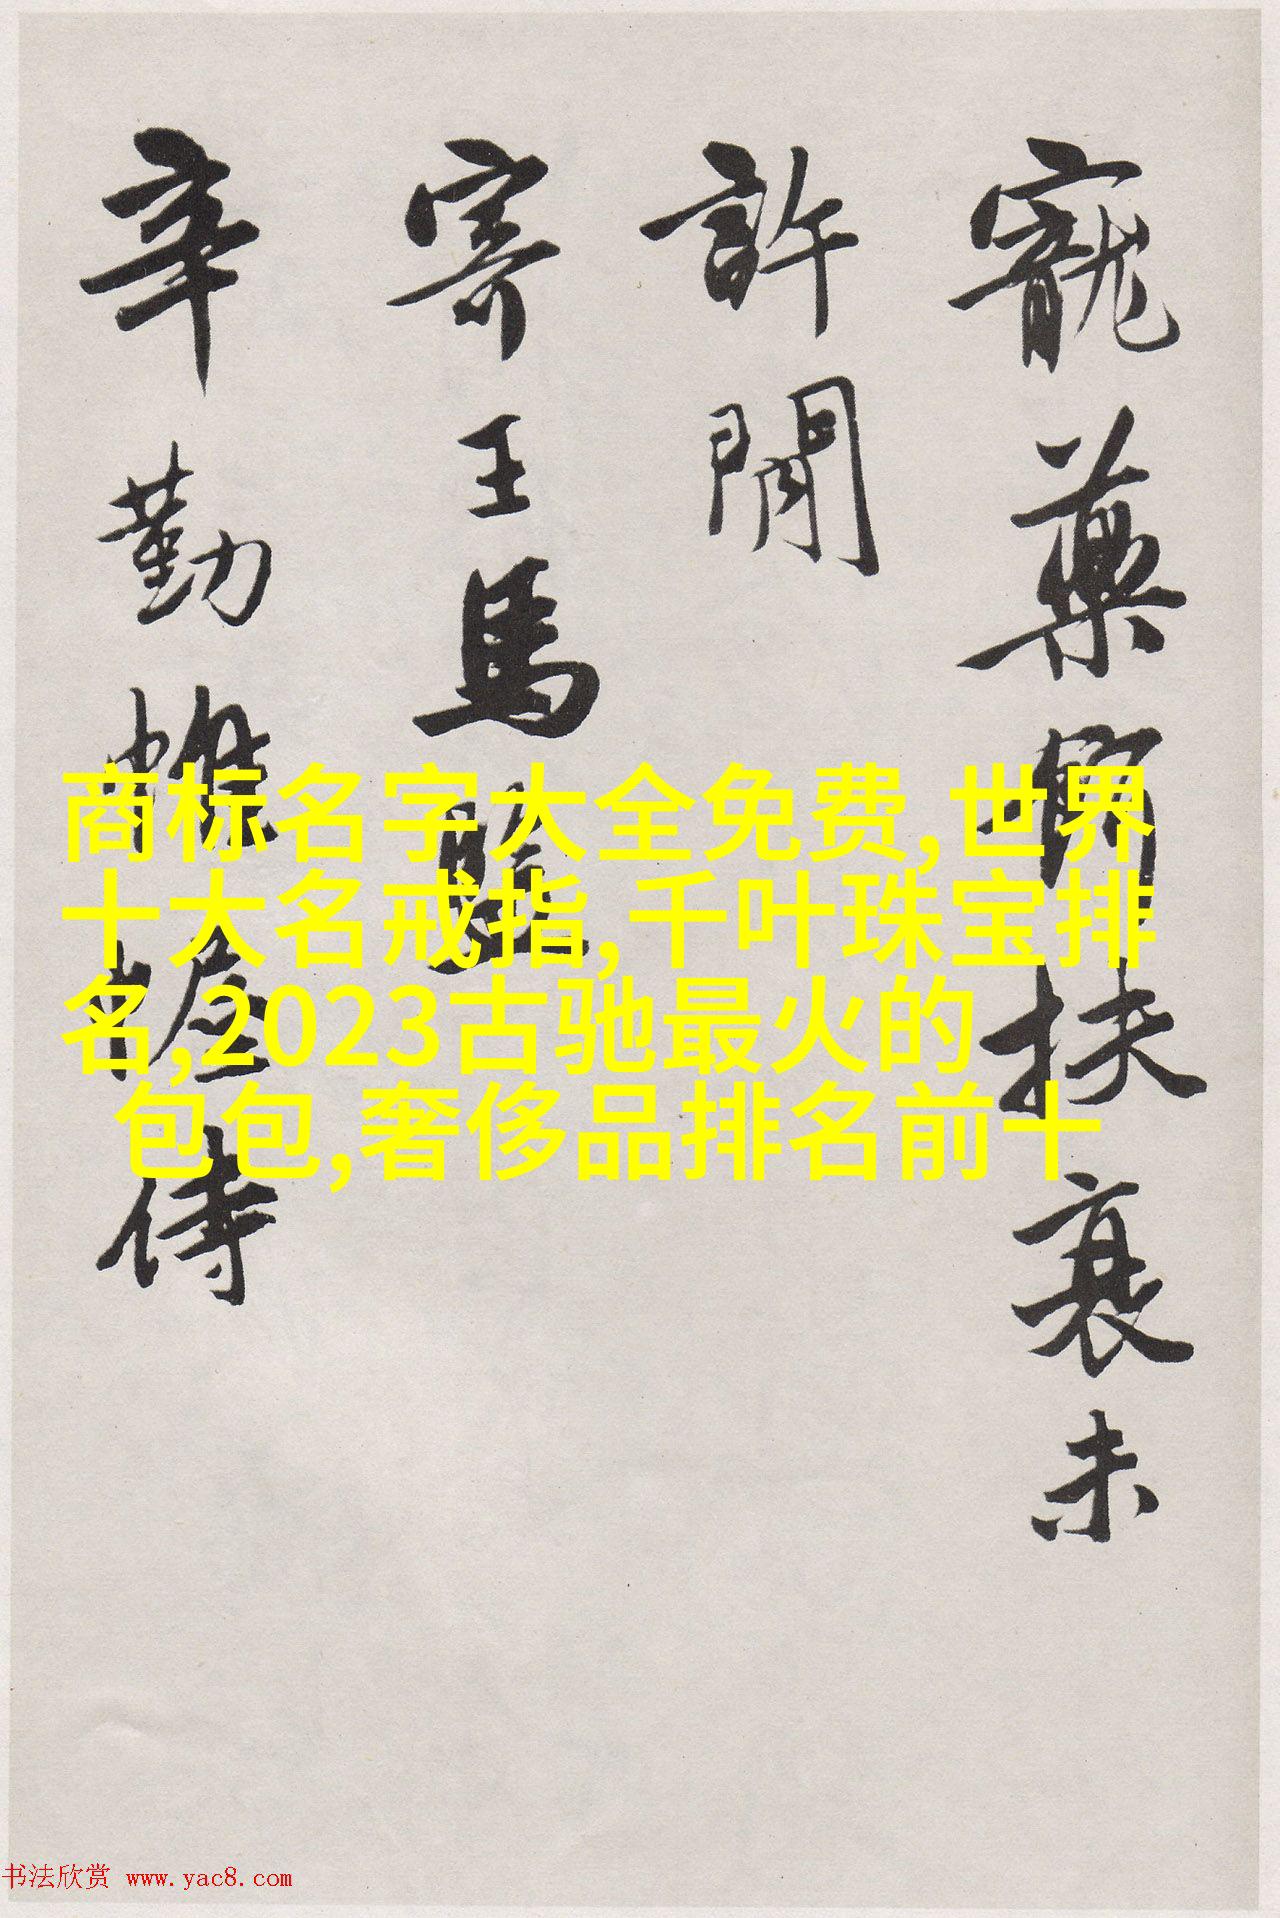 寵藥扶衰未
許閒
寄王馬
辛勤帷幄侍
商标名字大全免费,世界
十大名戒指,千叶珠宝排
名,2023古驰最火的
包包,奢侈品排名前十
书法欣赏 www.yac8.com